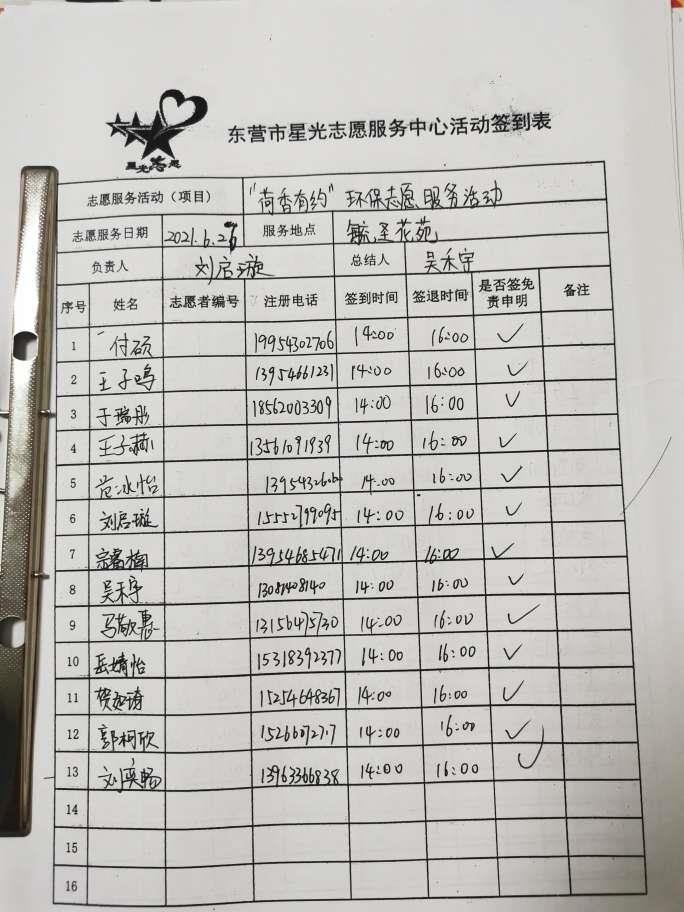 星光志愿
东营市星光志愿服务中心活动签到表
志愿服务活动（项目） "荷香有约"环保志愿服务活动
志愿服务日期 2021.6.26 服务地点 毓圣花苑
负责人 刘启璇 总结人 吴禾宇
序号 姓名 志愿者编号 注册电话 签到时间 签退时间 是否签免责申明 备注
1 付硕 19954302706 14:00 16:00 ✓
2 王子鸣 13954661231 14:00 16:00 ✓
3 于瑞彤 18562003309 14:00 16:00 ✓
4 王子赫 13561091939 14:00 16:00 ✓
5 范冰怡 14:00 16:00 ✓
6 刘启璇 15552799095 14:00 16:00 ✓
7 楠 13954685471 14:00 16:00 ✓
8 吴禾宇 14:00 16:00 ✓
9 马歆惠 13156475730 14:00 16:00 ✓
10 岳婧怡 15318392377 14:00 16:00 ✓
11 贺如琦 15254648367 14:00 16:00 ✓
12 郭柯欣 14:00 16:00 ✓
13 刘奕畅 13963366838 14:00 16:00 ✓
14
15
16